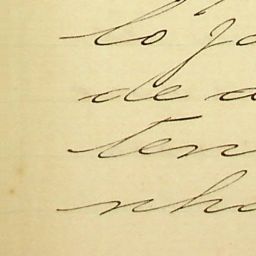 lo jo
de a
ten
nho